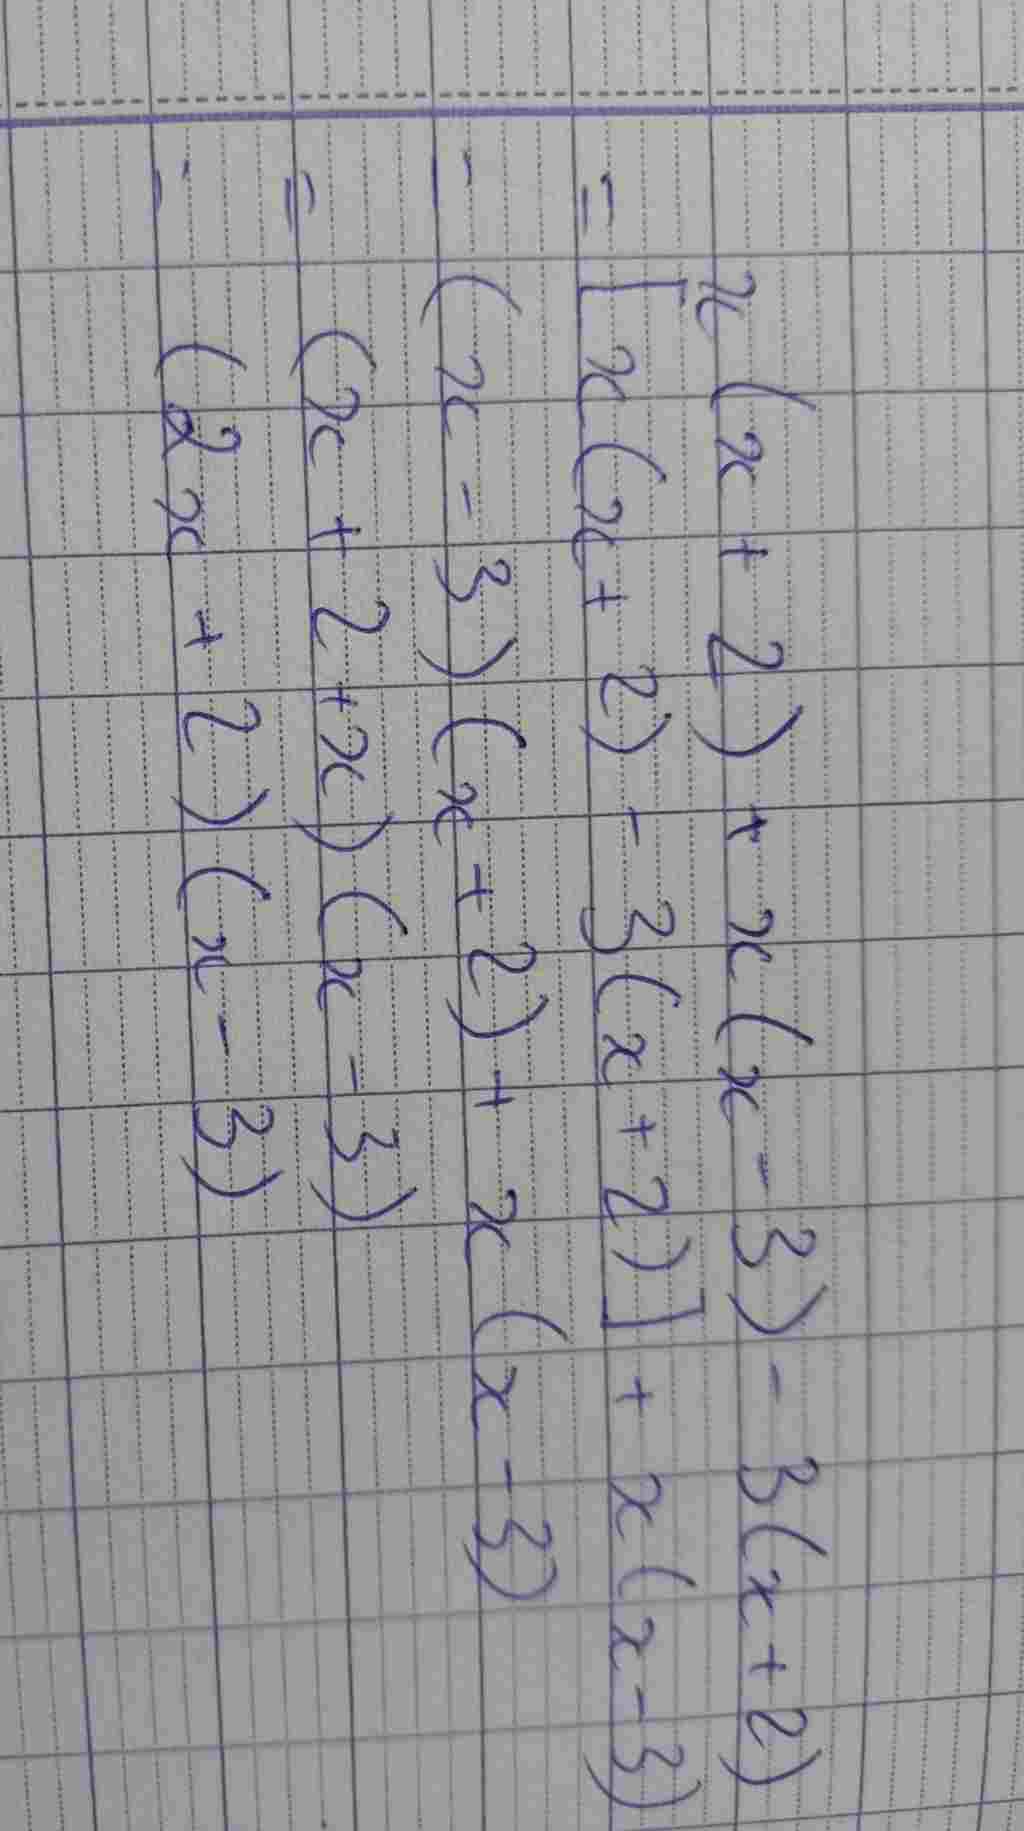 x(x + 2) + x(x - 3) - 3(x + 2)
= [x(x + 2) - 3(x + 2)] + x(x - 3)
= (x - 3)(x + 2) + x(x - 3)
= (x + 2 + x)(x - 3)
= (2x + 2)(x - 3)